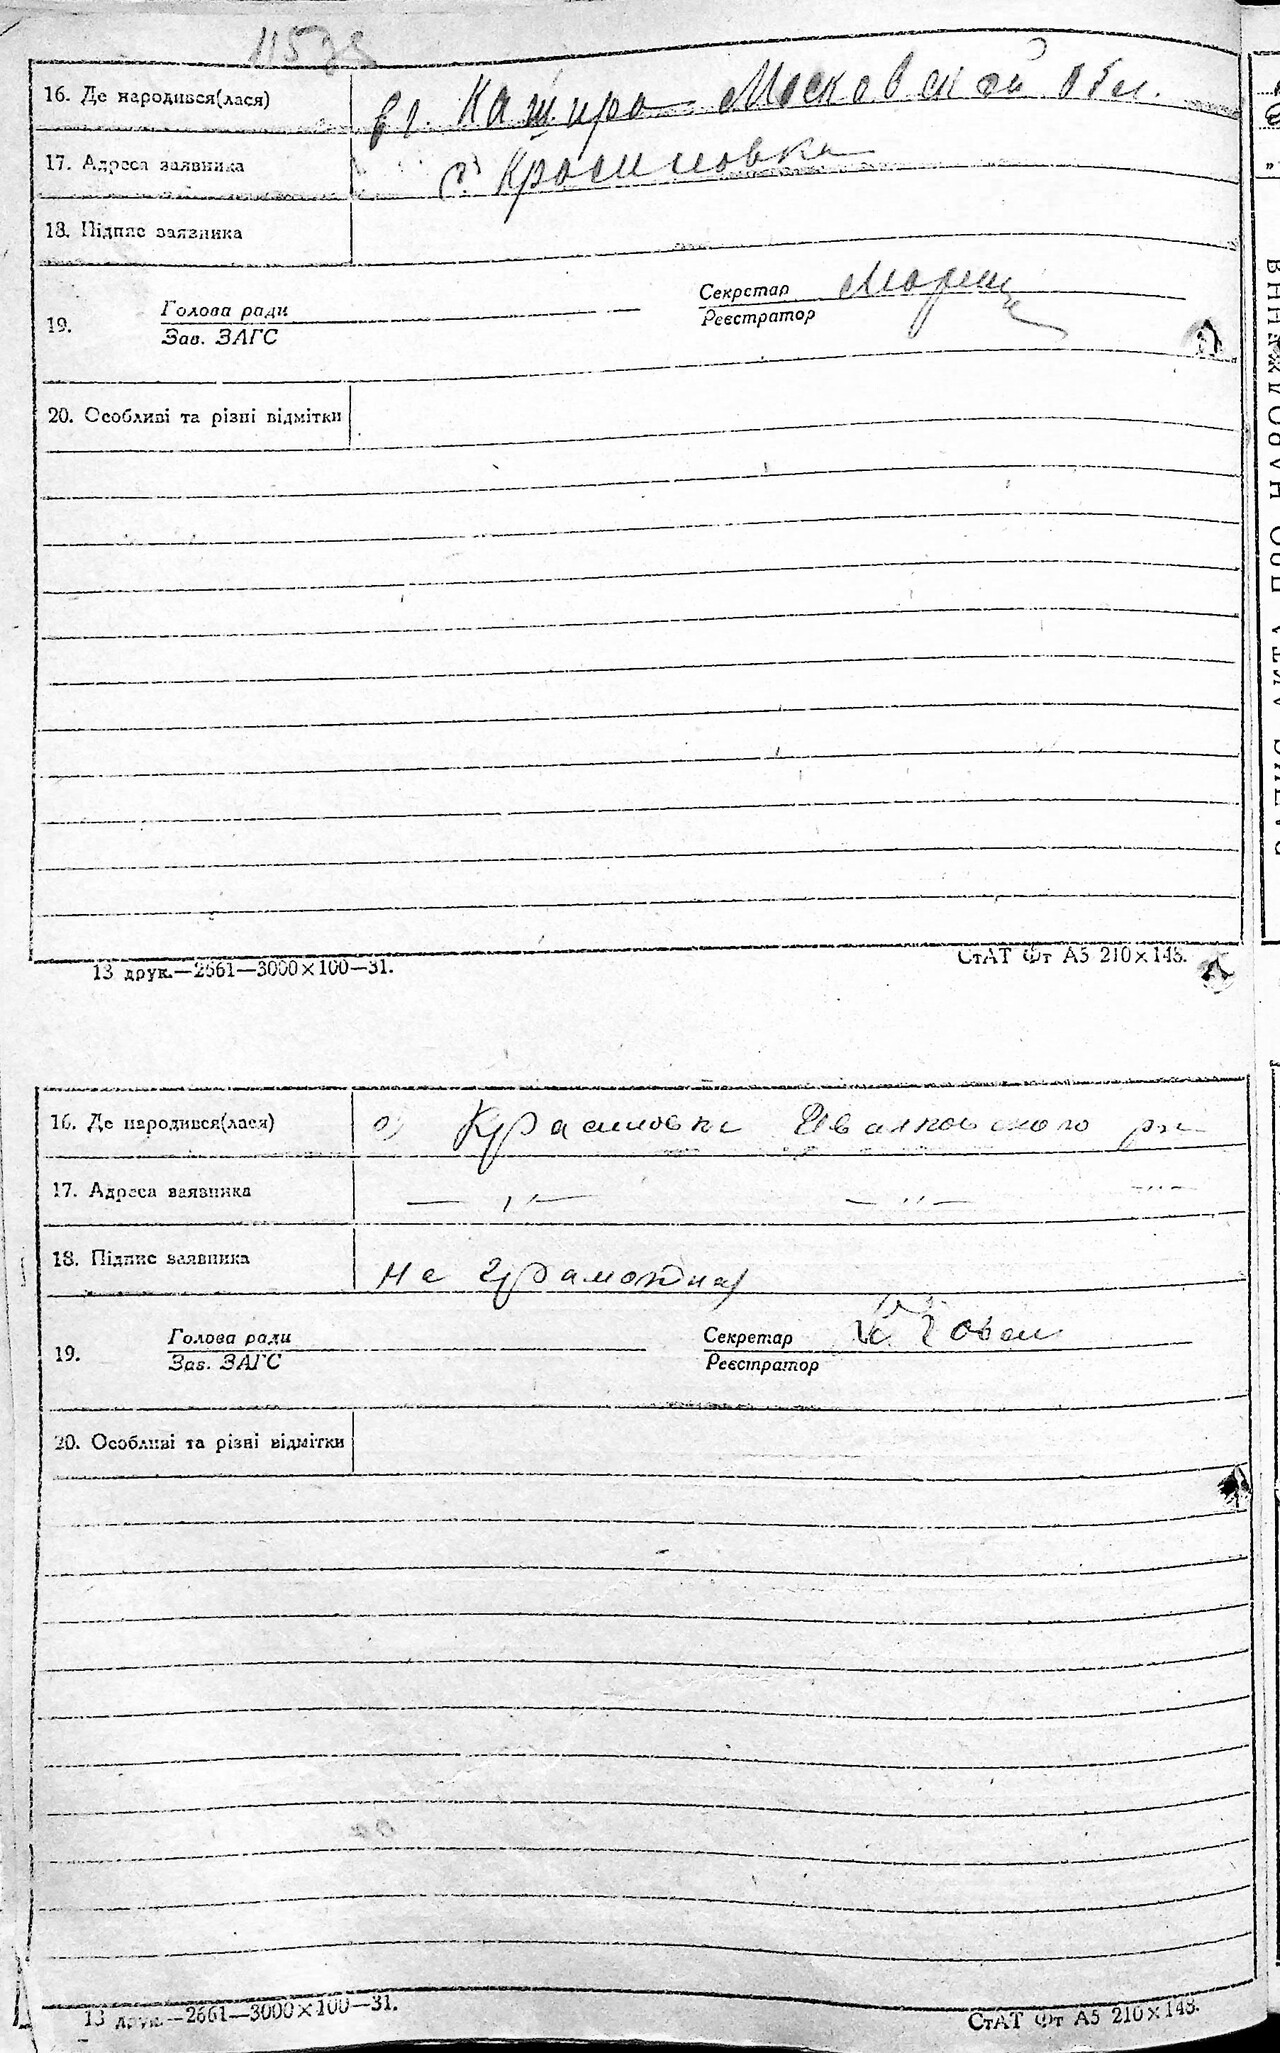 1157
16. Де народився(лася) в г. Кашира Московской обл.
17. Адреса заявника с. Красиловка
18. Підпис заявника
19. Голова ради
Зав. ЗАГС
Секретар
Реєстратор
20. Особливі та різні відмітки
13 друк.—2661—3000×100—31. СтАТ Фт А5 210×148.
16. Де народився(лася) с) Красиловка Иванковского р-
17. Адреса заявника —〃— —〃— —〃—
18. Підпис заявника не грамотная
19. Голова ради
Зав. ЗАГС
Секретар
Реєстратор
20. Особливі та різні відмітки
13 друк.—2661—3000×100—31. СтАТ Фт А5 210×148.